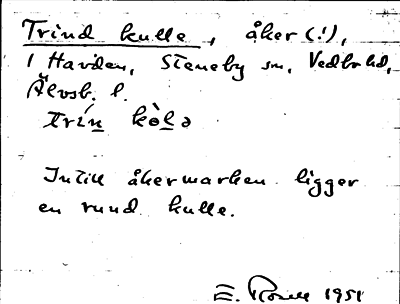 Trind kulle, åker (!),
i Havden, Steneby sn, Vedbo hd,
Älvsb. l.
trín kòlə
Intill åkermarken ligger
en rund kulle.
E. 1951